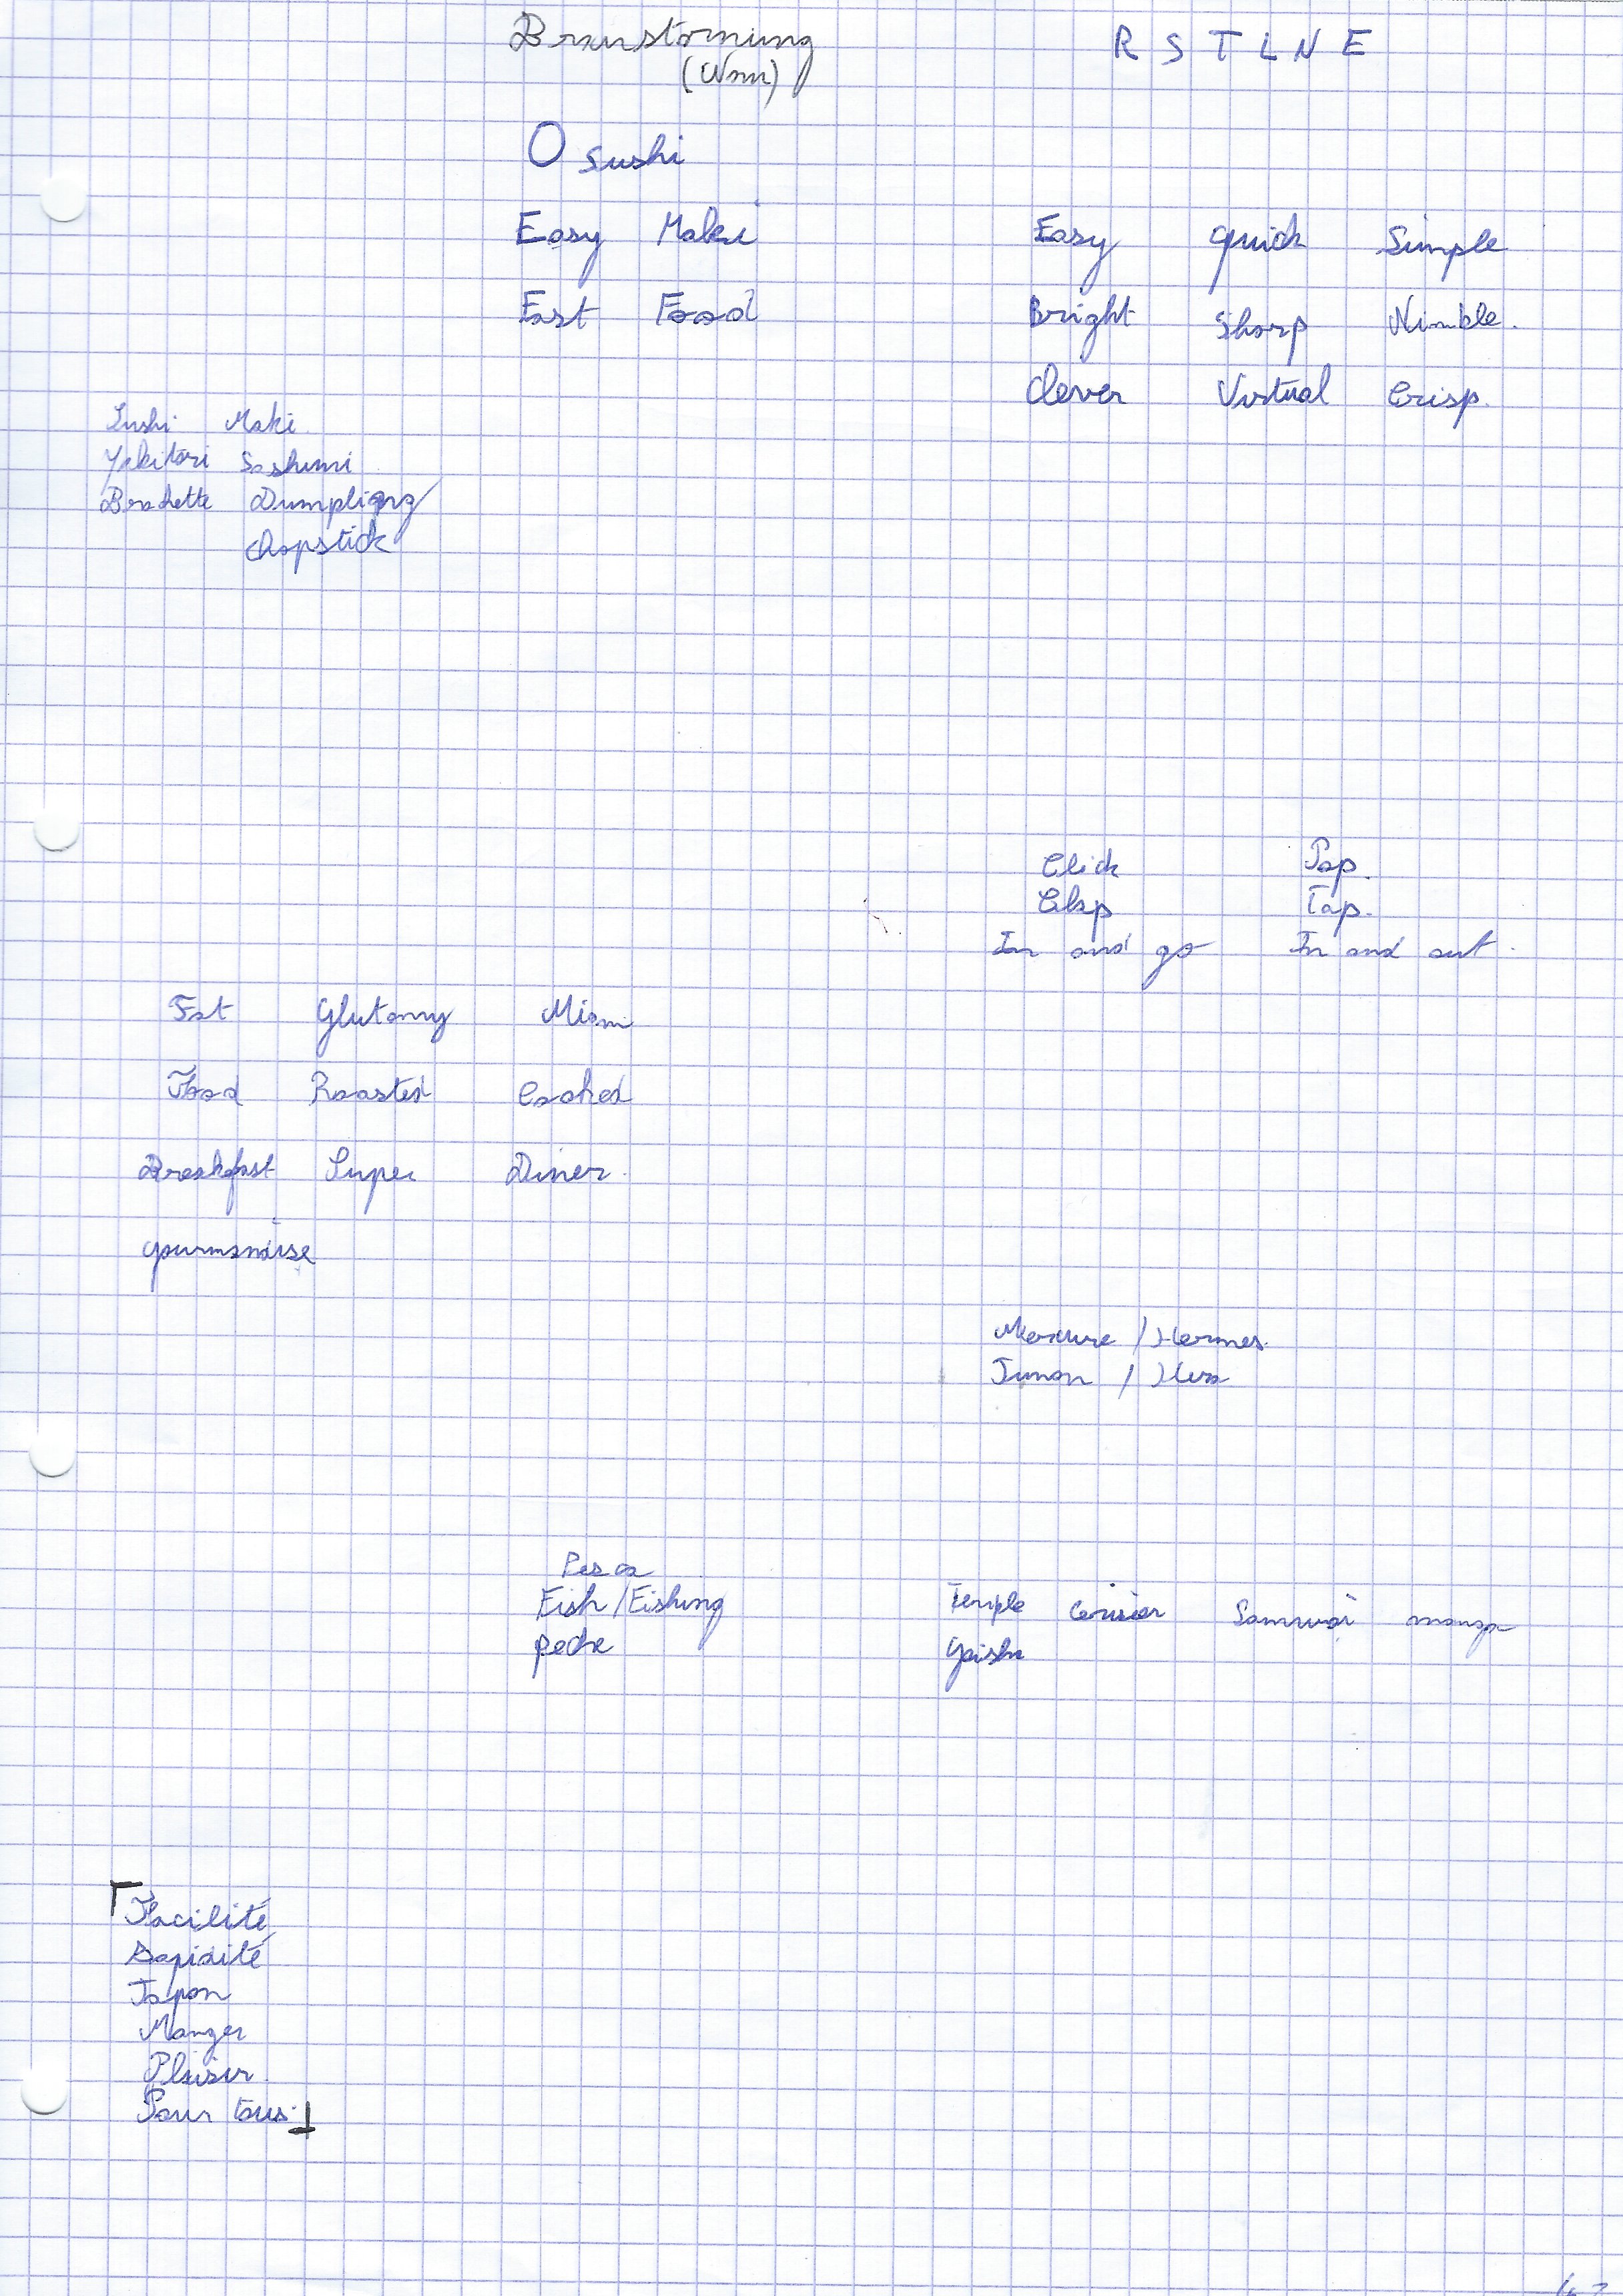 Brainstorming
(Nom)
R S T L N E
O sushi
Easy Maki
East Food
Easy quick Simple
Bright Sharp Nimble.
Clever Virtual Crisp.
Sushi Maki
Yakitori Sashimi
Brochette Dumpligng
Chopstick
Click Pop.
Clap Tap.
In and go In and out.
Fat Glutonny Miam
Food Roasted Cooked
Breakfast Super Diner.
gourmandise
Mercure / Hermes.
Junon / Hera
Pesca
Fish / Fishing
peche
Temple Cerisier Samurai manga
Geisha
Facilité
Rapidité
Japon
Manger
Plaisir
Pour tous.